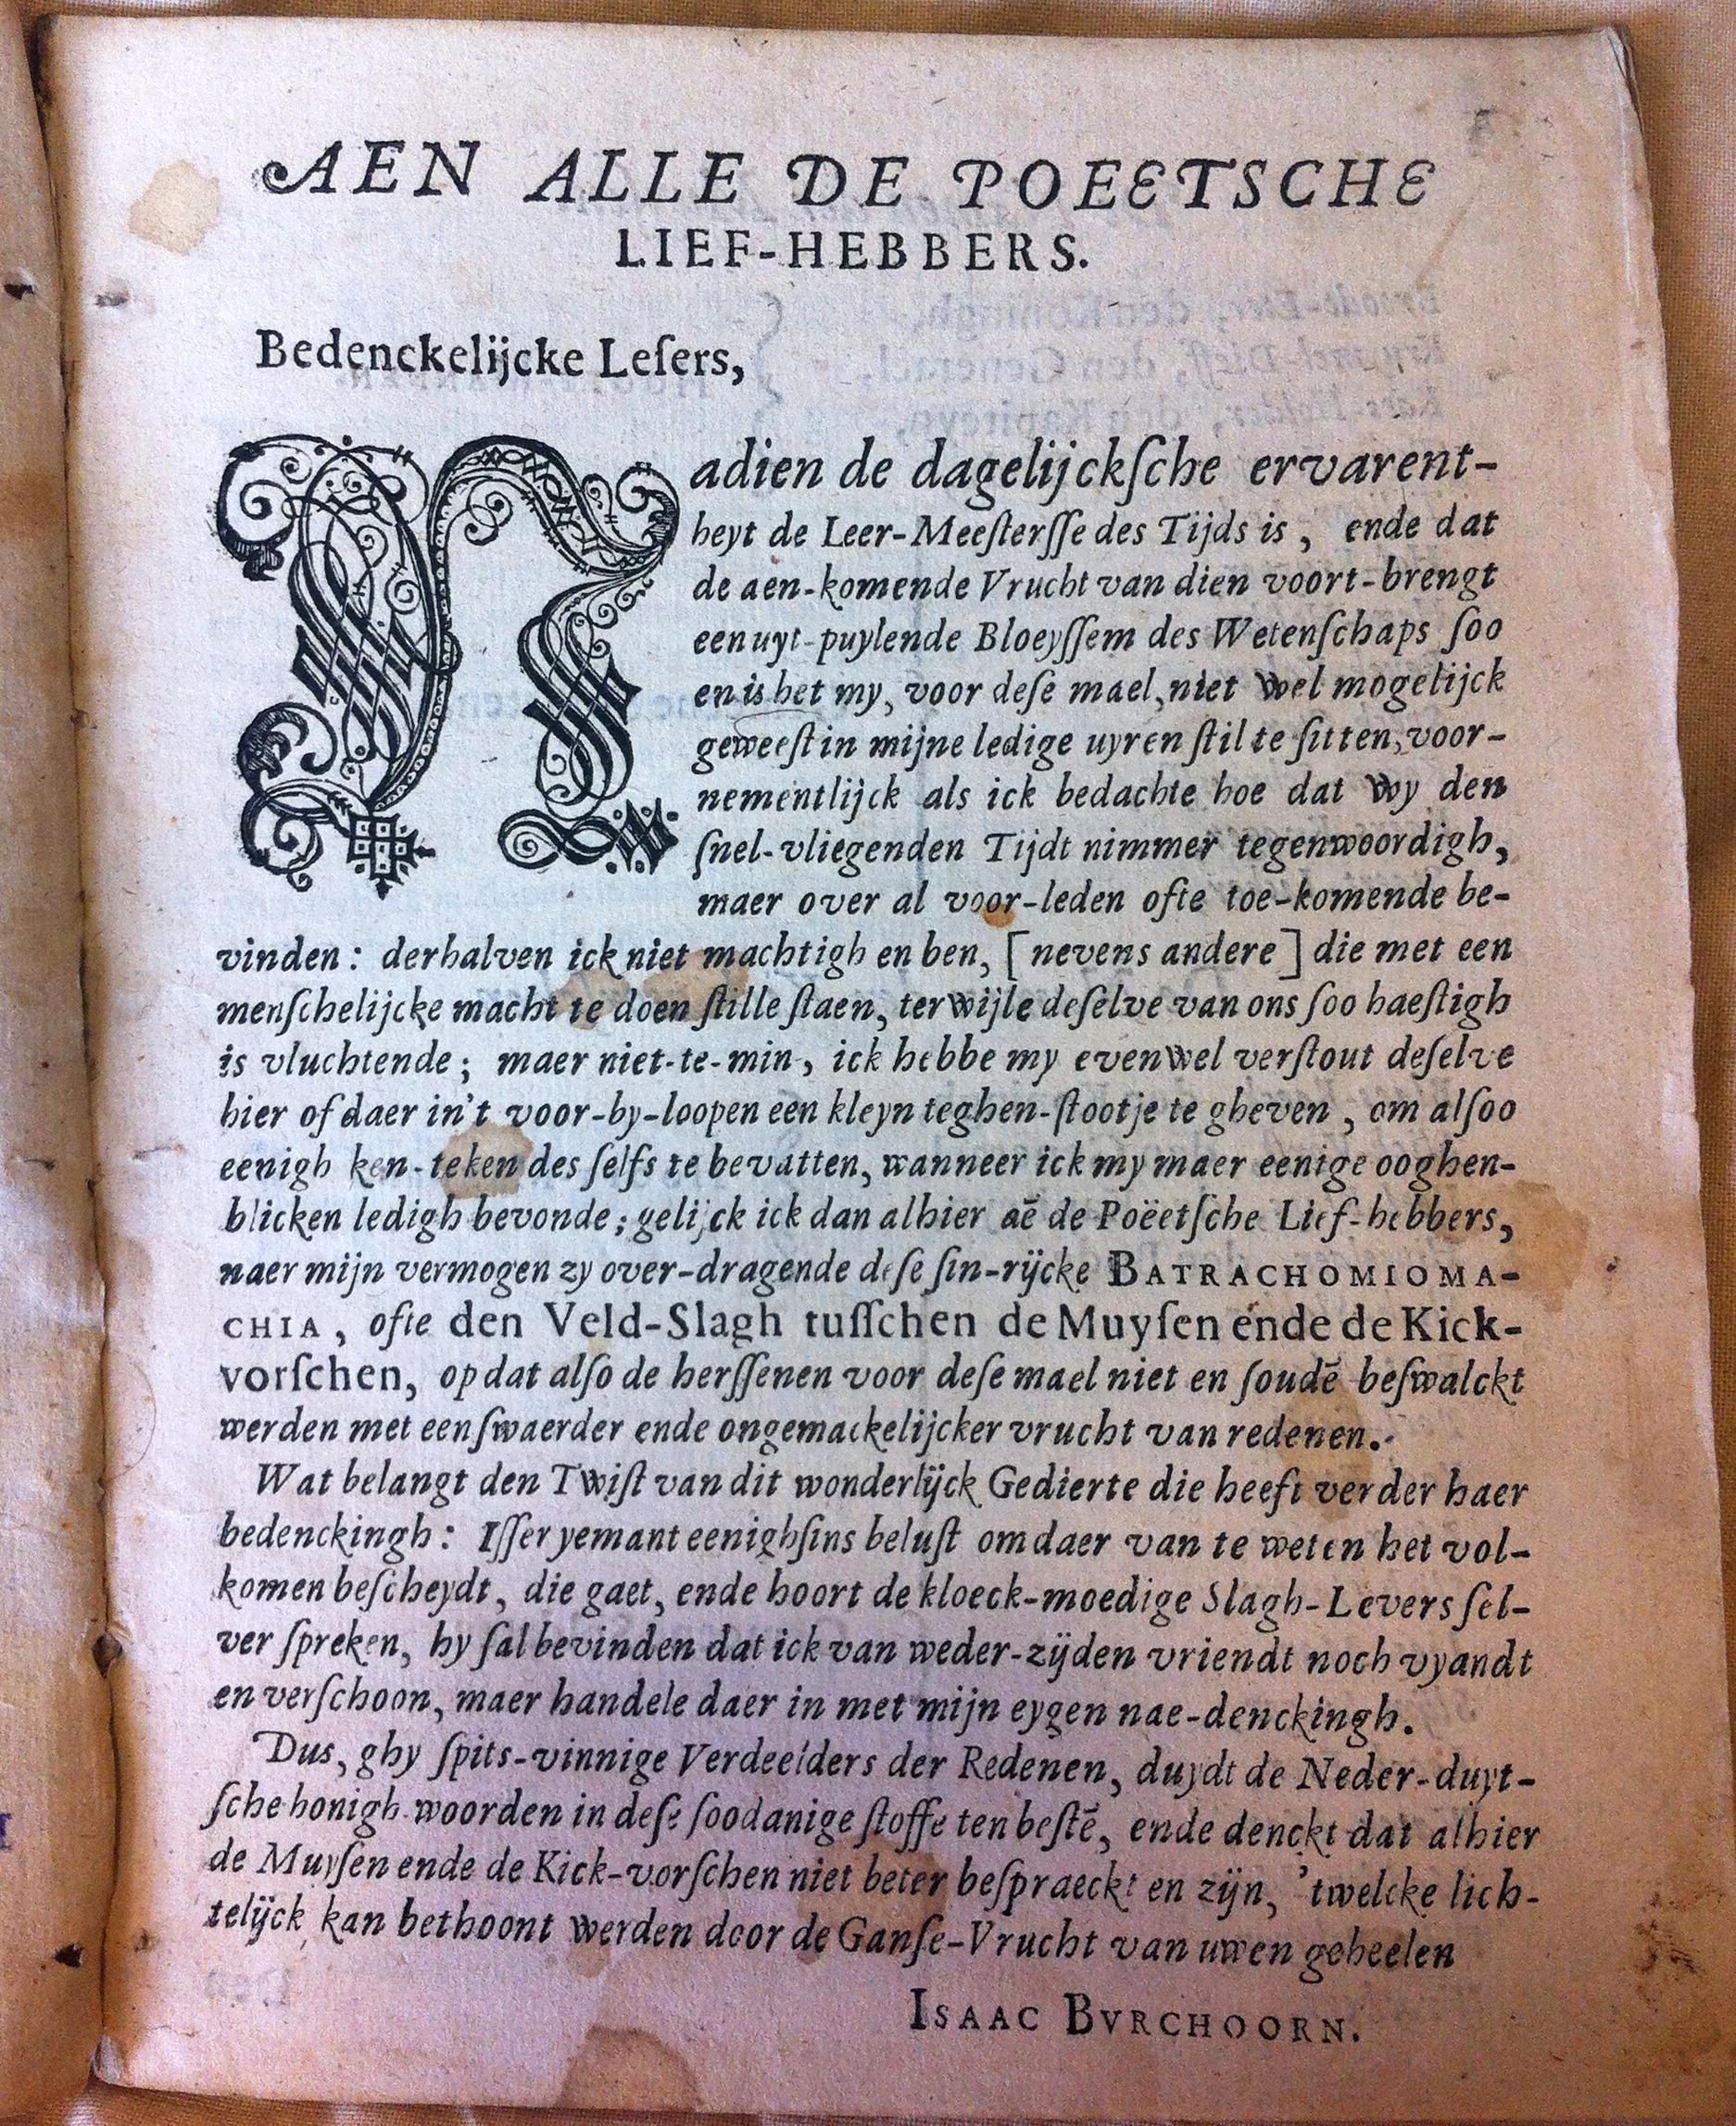 AEN ALLE DE POEETSCHE
LIEF-HEBBERS.
Bedenckelijcke Leſers,
Nadien de dagelijckſche ervarent-
heyt de Leer-Meeſterſſe des Tijds is, ende dat
de aen-komende Vrucht van dien voort-brengt
een uyt-puylende Bloeyſſem des Wetenſchaps ſoo
en is het my, voor deſe mael, niet wel mogelijck
geweeſt in mijne ledige uyren ſtil te ſitten, voor-
nementlijck als ick bedachte hoe dat wy den
ſnel-vliegenden Tijdt nimmer tegenwoordigh,
maer over al voor-leden ofte toe-komende be-
vinden: derhalven ick niet machtigh en ben, [nevens andere] die met een
menſchelijcke macht te doen ſtille ſtaen, terwijle deſelve van ons ſoo haeſtigh
is vluchtende; maer niet-te-min, ick hebbe my evenwel verſtout deſelve
hier of daer in't voor-by-loopen een kleyn teghen-ſtootje te gheven, om alſoo
eenigh ken-teken des ſelfs te bevatten, wanneer ick my maer eenige ooghen-
blicken ledigh bevonde; gelijck ick dan alhier aē de Poëetſche Lief-hebbers,
naer mijn vermogen zy over-dragende deſe ſin-rijcke BATRACHOMIOMA-
CHIA, ofte den Veld-Slagh tuſſchen de Muyſen ende de Kick-
vorſchen, op dat alſo de herſſenen voor deſe mael niet en ſoudē beſwalckt
werden met een ſwaerder ende ongemackelijcker vrucht van redenen.
Wat belangt den Twiſt van dit wonderlijck Gedierte die heeft verder haer
bedenckingh: Iſſer yemant eenighſins beluſt om daer van te weten het vol-
komen beſcheydt, die gaet, ende hoort de kloeck-moedige Slagh-Levers ſel-
ver ſpreken, hy ſal bevinden dat ick van weder-zijden vriendt noch vyandt
en verſchoon, maer handele daer in met mijn eygen nae-denckingh.
Dus, ghy ſpits-vinnige Verdeelders der Redenen, duydt de Neder-duyt-
ſche honigh-woorden in deſe ſoodanige ſtoffe ten beſtē, ende denckt dat alhier
de Muyſen ende de Kick-vorſchen niet beter beſpraeckt en zijn, 'twelcke lich-
telijck kan bethoont werden door de Ganſe-Vrucht van uwen geheelen
ISAAC BVRCHOORN.